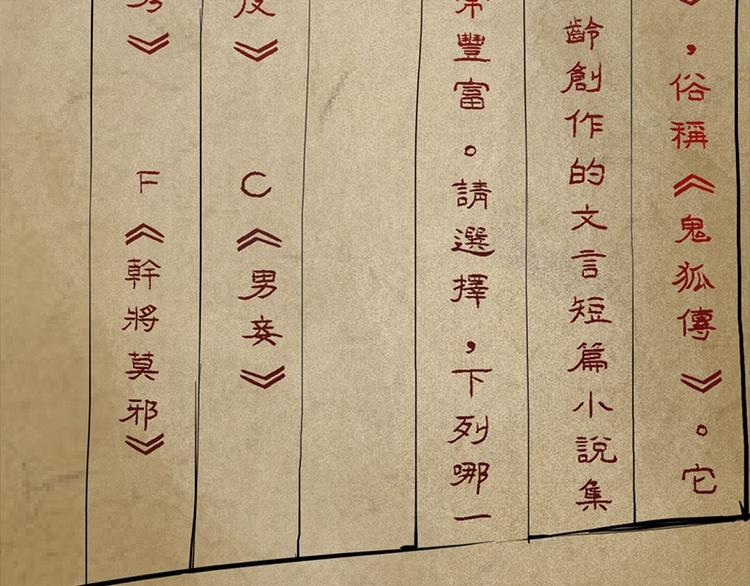 》，俗稱《鬼狐傳》。它
齡創作的文言短篇小說集
豐富。請選擇，下列哪一
》 C《男妾》
》 F《幹將莫邪》